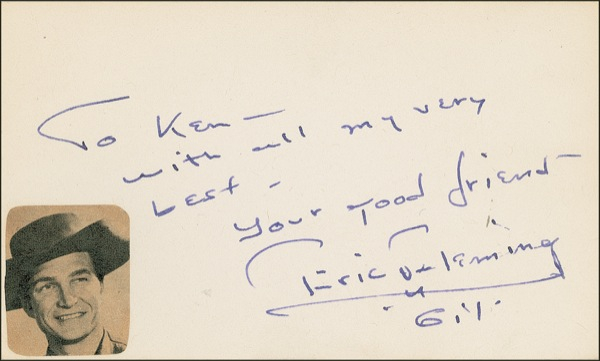 To Ken —
with all my very
best —
your good friend
Eric Fleming
"Gil"